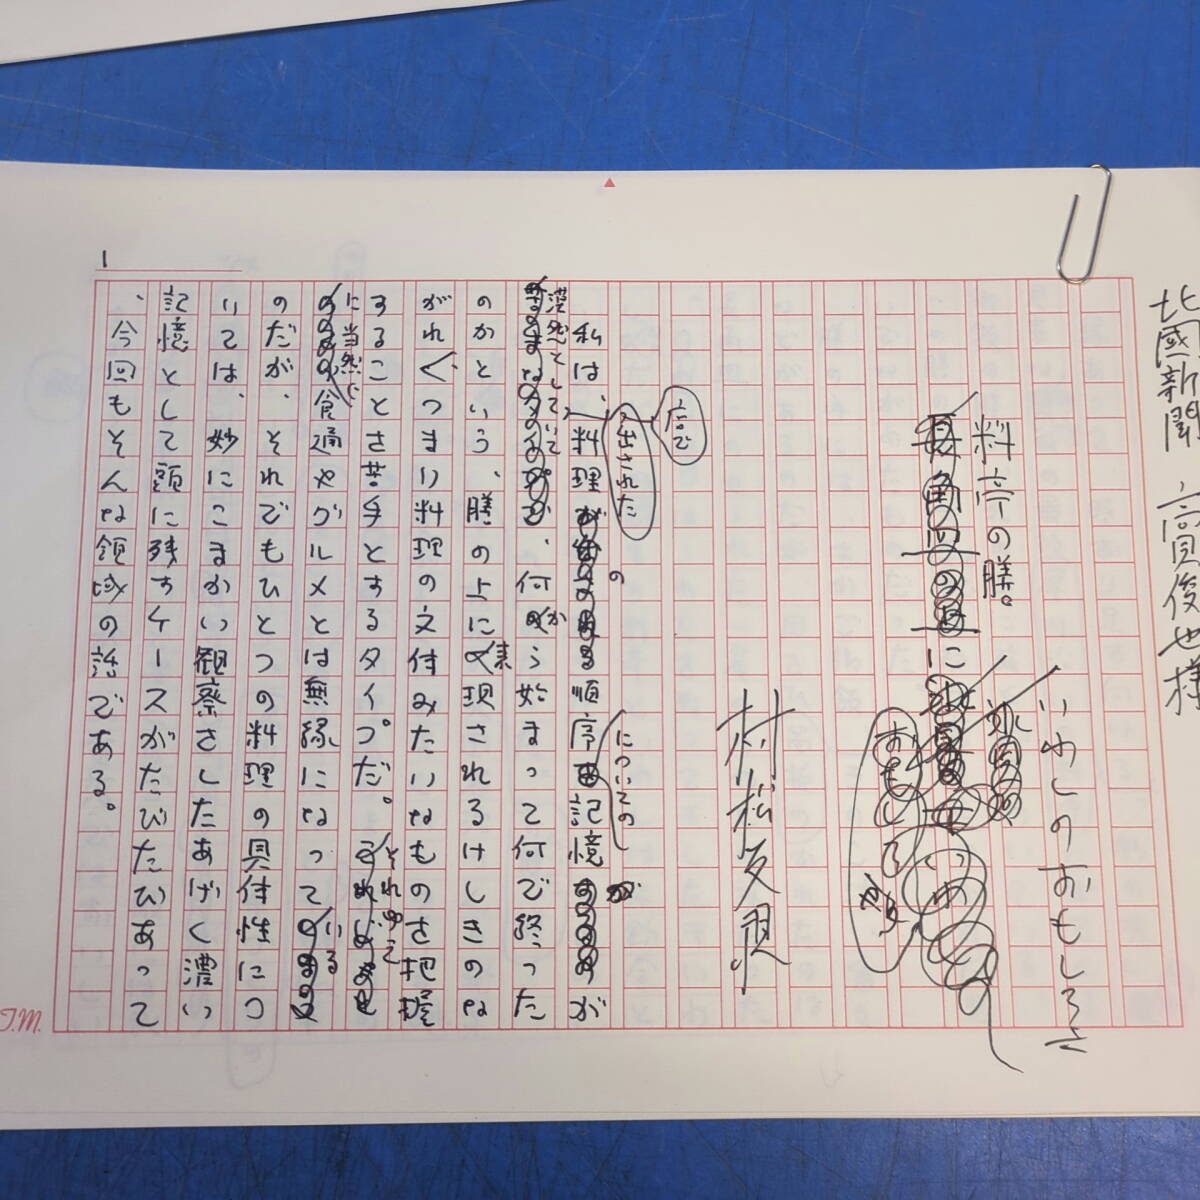 北國新聞 高貝俊也様
いわしのおもしろさ
料亭の膳。
に
おもしろ
村松友視
店で
出された
の
についての
が
私は、料理
順序
記憶
が
混然としていて、何
から始まって何で終った
のかという、膳の上に表現されるけしきのな
がれ、つまり料理の文付みたいなものさ把握
することさ苦手とするタイプだ。それゆえ
に当然、食通やグルメとは無縁になって
いる
のだが、それでもひとつの料理の具付性につ
いては、妙にこまかい観察さしたあげく濃い
記憶として頭に残すケースがたびたびあって
、今回もそんな領域の話である。
1
T.M.